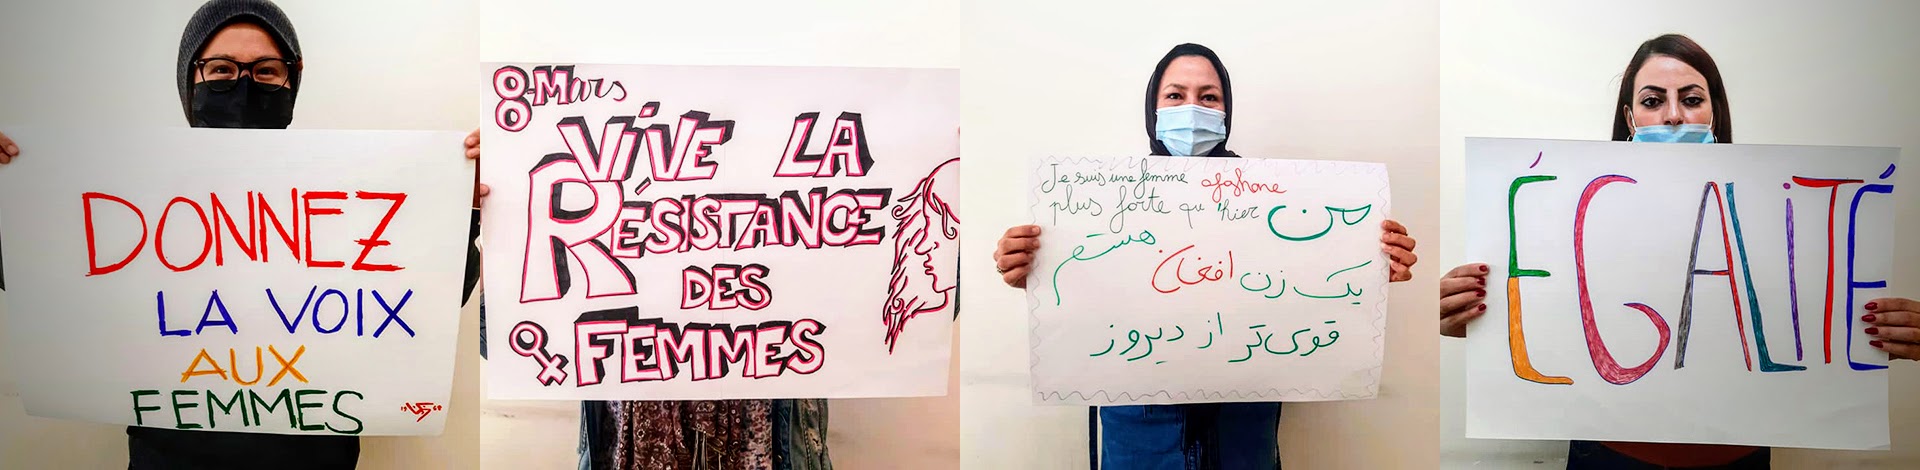 DONNEZ
LA VOIX
AUX
FEMMES
8 Mars
VIVE LA
RÉSISTANCE
DES
FEMMES
Je suis une femme afghane
plus forte qu'hier
من
یک زن افغان هستم
قوی‌تر از دیروز
ÉGALITÉ